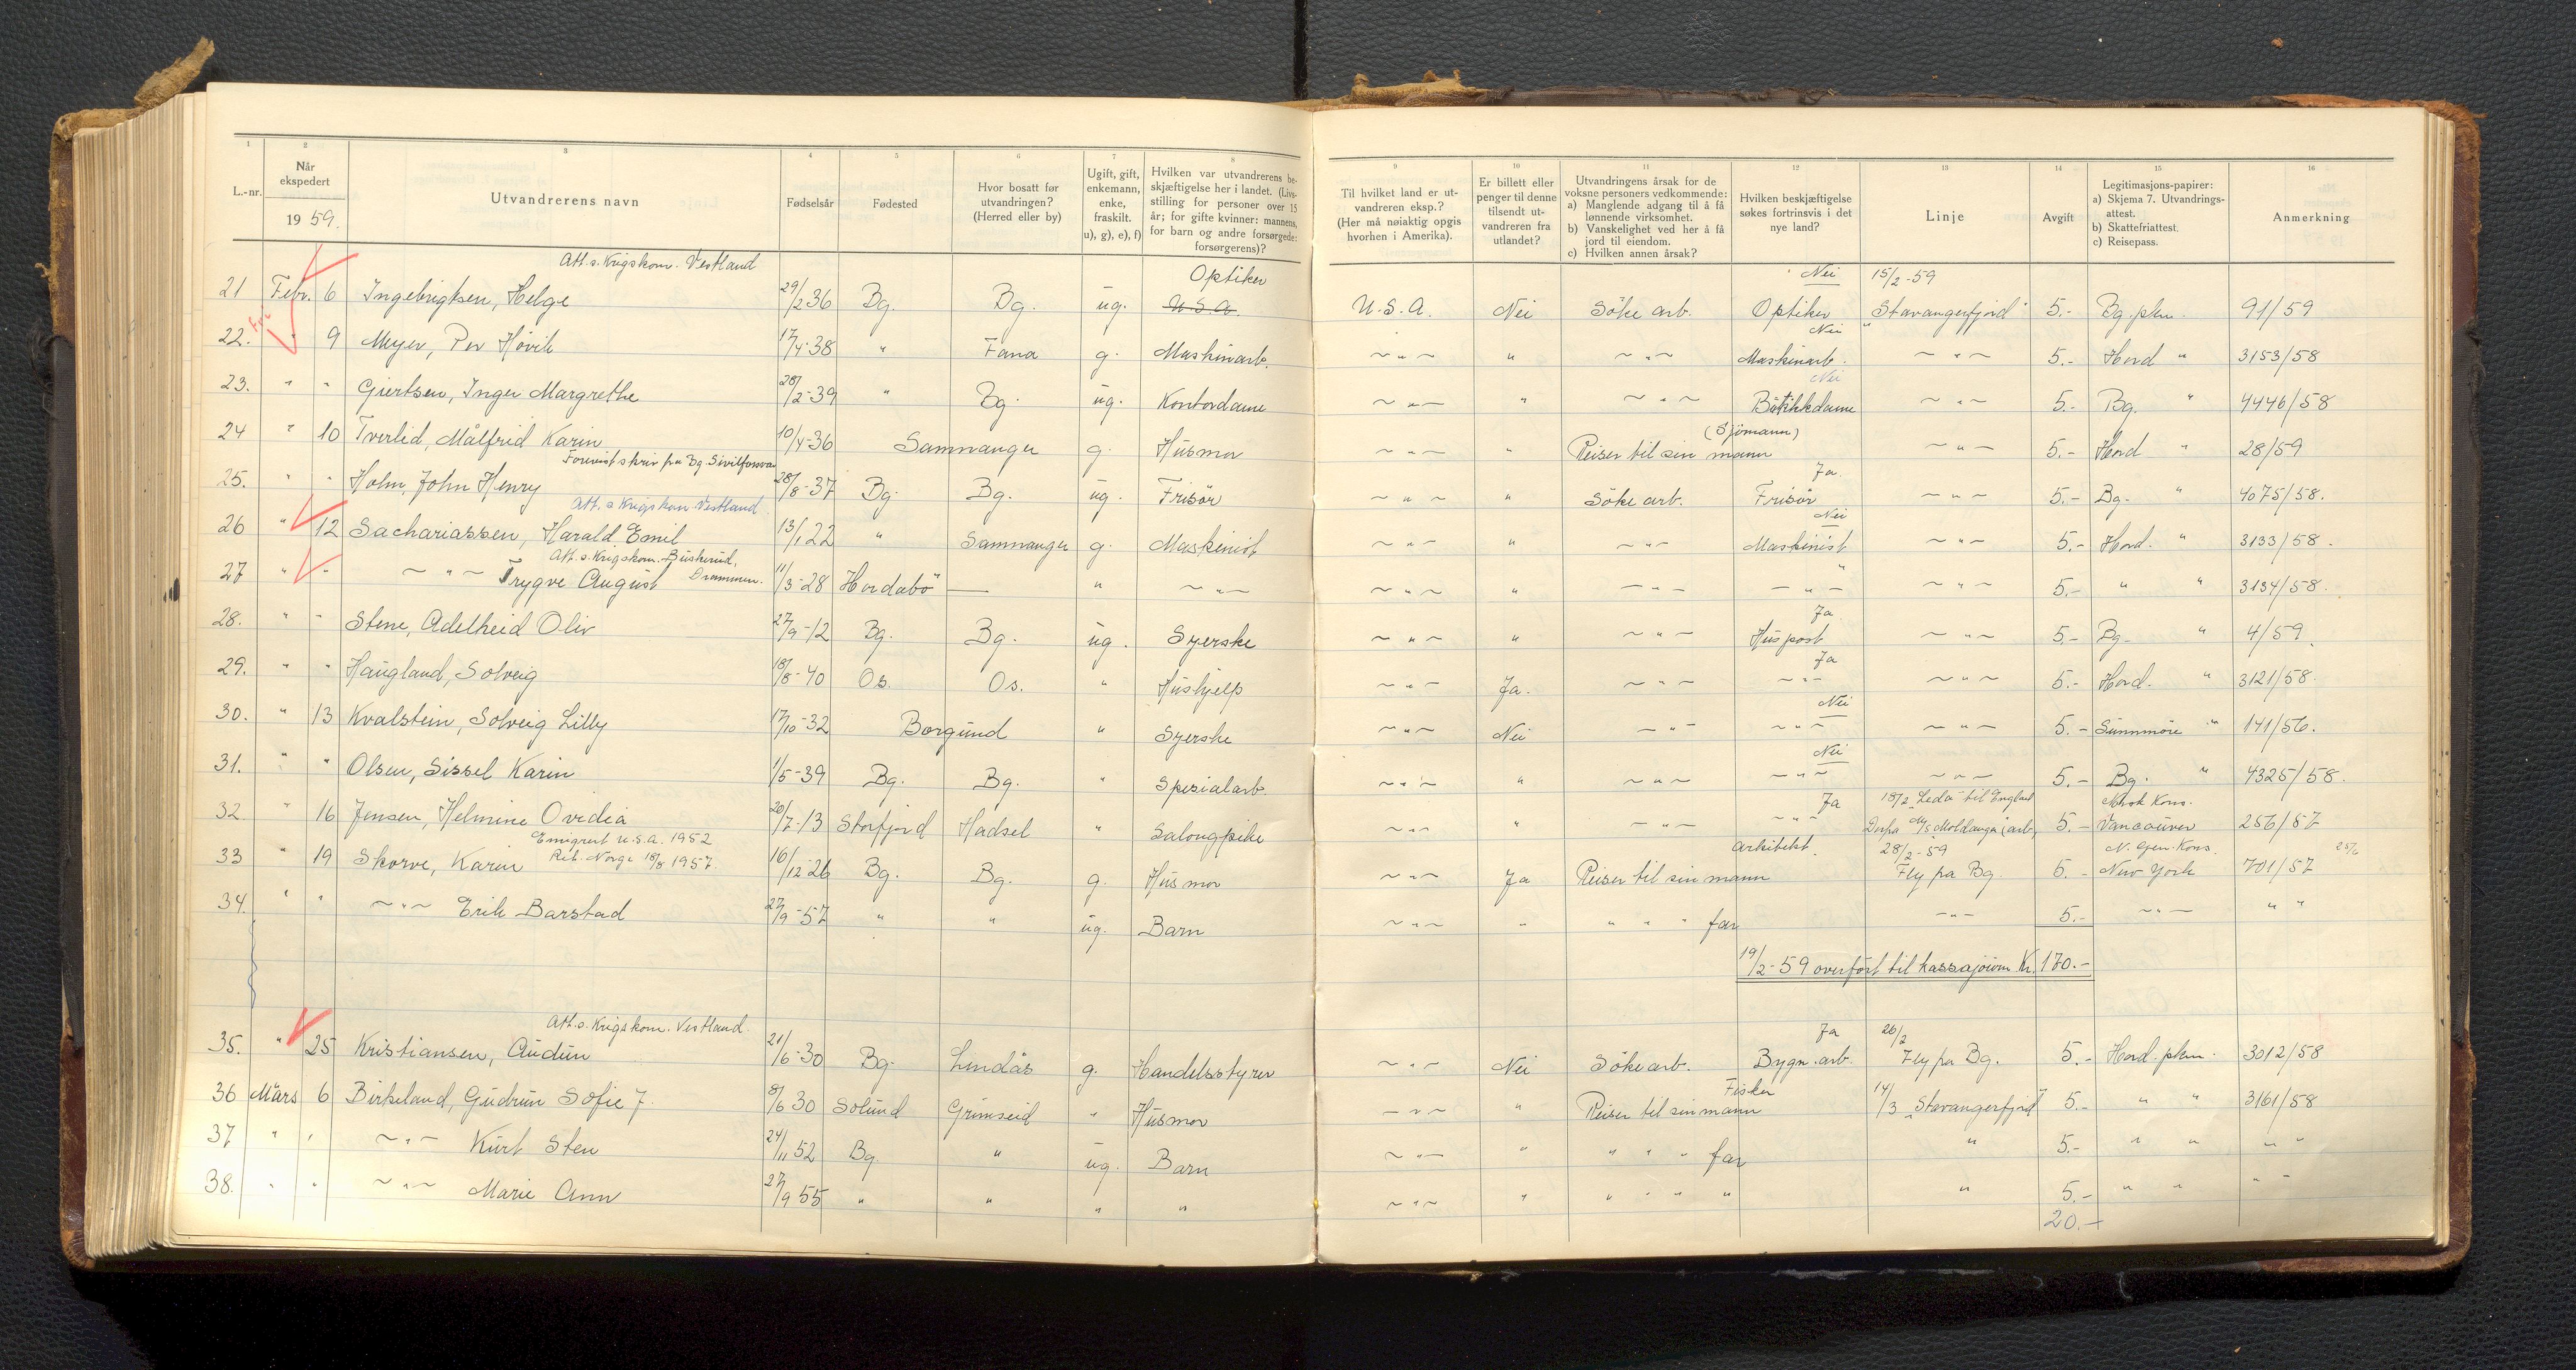 1 2 3 4 5 6 7 8 9 10 11 12 13 14 15 16
L.-nr. Når ekspedert 1959. Utvandrerens navn Fødselsår Fødested Hvor bosatt før utvandringen? (Herred eller by) Ugift, gift, enkemann, enke, fraskilt. u), g), e), f) Hvilken var utvandrerens beskjæftigelse her i landet. (Livsstilling for personer over 15 år; for gifte kvinner: mannens, for barn og andre forsørgede: forsørgerens)? Til hvilket land er utvandreren eksp.? (Her må nøiaktig opgis hvorhen i Amerika). Er billett eller penger til denne tilsendt utvandreren fra utlandet? Utvandringens årsak for de voksne personers vedkommende: a) Manglende adgang til å få lønnende virksomhet. b) Vanskelighet ved her å få jord til eiendom. c) Hvilken annen årsak? Hvilken beskjæftigelse søkes fortrinsvis i det nye land? Linje Avgift Legitimasjons-papirer: a) Skjema 7. Utvandringsattest. b) Skattefriattest. c) Reisepass. Anmerkning
Att. s. Krigskom. Vestland Optiker Nei 15/2-59
21 Febr. 6 Ingebrigtsen, Helge 29/2 36 Bg. Bg. ug. U.S.A. U.S.A. Nei Söke arb. Optiker "Stavangerfjord" 5.- Bg. pkm. 91/59
Fri Nei
22. " 9 Meyer, Per Hövik 17/4-38 " Fana g. Maskinarb. ~"~ " ~"~ Maskinarb. ~"~ 5.- Hord " 3153/58
Nei
23. " " Giertsen, Inger Margrethe 28/2-39 " Bg. ug. Kontordame ~"~ " ~"~ Butikkdame ~"~ 5.- Bg. " 4446/58
(Sjömann)
24 " 10 Tverlid, Målfrid Karin 10/4-36 Samnanger g. Husmor ~"~ " Reiser til sin mann ~"~ 5.- Hord " 28/59
Bg. Sivilforsvar Ja.
25. " " Holm, John Henry 28/8-37 Bg. Bg. ug. Frisör ~"~ " Söke arb. Frisör ~"~ 5.- Bg. " 4075/58.
Att. s. Krigskom Vestland Nei
26 " 12 Sachariassen, Harald Emil 13/1 22 " Samnanger g. Maskinist ~"~ " ~"~ Maskinist ~"~ 5.- Hord. " 3133/58.
Att. s. Krigskom. Buskerud, Drammen. "
27 " " ~"~ Trygve August 11/3-28 Hordabö — " ~"~ ~"~ " ~"~ ~"~ ~"~ 5.- " " 3134/58.
Ja
28. " " Stene, Adelheid Oliv 27/9-12 Bg. Bg. ug. Syerske ~"~ " ~"~ Huspost ~"~ 5.- Bg. " 4/59.
Ja
29. " " Haugland, Solveig 18/8-40 Os. Os. " Hushjelp ~"~ Ja. ~"~ ~"~ ~"~ 5.- Hord. " 3121/58.
Nei
30. " 13 Kvalstein, Solveig Lilly 17/10-32 Borgund " Syerske ~"~ Nei ~"~ ~"~ ~"~ 5.- Sunnmöre " 141/56.
Nei
31. " " Olsen, Sissel Karin 1/5-39 Bg. Bg. " Spesialarb. ~"~ " ~"~ ~"~ ~"~ 5.- Bg. " 4325/58.
Ja 18/2 "Leda" til England Norsk Kons.
32 " 16 Jensen, Helmine Ovidia 20/7-13 Storfjord Hadsel " Salongpike ~"~ " ~"~ ~"~ Derfra M/S Moldanger i arb. 5.- Vancouver 256/57
Emigrert U.S.A. 1952 arkitekt. 28/2-59 N. Gen. Kons.
33 " 19 Skorve, Karin Ret. Norge 18/8 1957. 16/12-26 Bg. Bg. g. Husmor ~"~ Ja Reiser til sin mann Fly fra Bg. 5.- New York 701/57
34. " " ~"~ Erik Barstad 27/9-57 " " ug. Barn ~"~ " " " " far ~"~ 5.- ~"~ " "
19/2-59 overfört til kassajourn Kr. 170.-
Att. s. Krigskom. Vestland. Ja 26/2
35. " 25 Kristiansen, Audun 21/6-30 Bg. Lindås g. Handelsstyrer ~"~ Nei Söke arb. Bygn. arb. Fly fra Bg. 5.- Hord. pkm. 3012/58
Fisker
36 Mars 6 Birkeland, Gudrun Sofie J. 8/6 30 Solund Grimseid " Husmor ~"~ " Reiser til sin mann 14/3 "Stavangerfjord" 5.- " " 3161/58
37 " " ~"~ Kurt Sten 24/11 52 Bg. " ug. Barn ~"~ " " " " far " 5.- " " " "
38. " " ~"~ Marie Ann 27/9 55 " " " " ~"~ " " " " " " 5.- " " " "
20.-